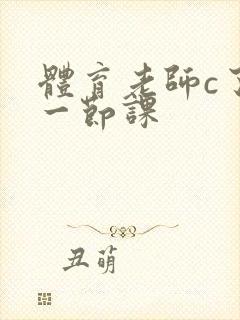 體育老師c了
一節課
丑萌